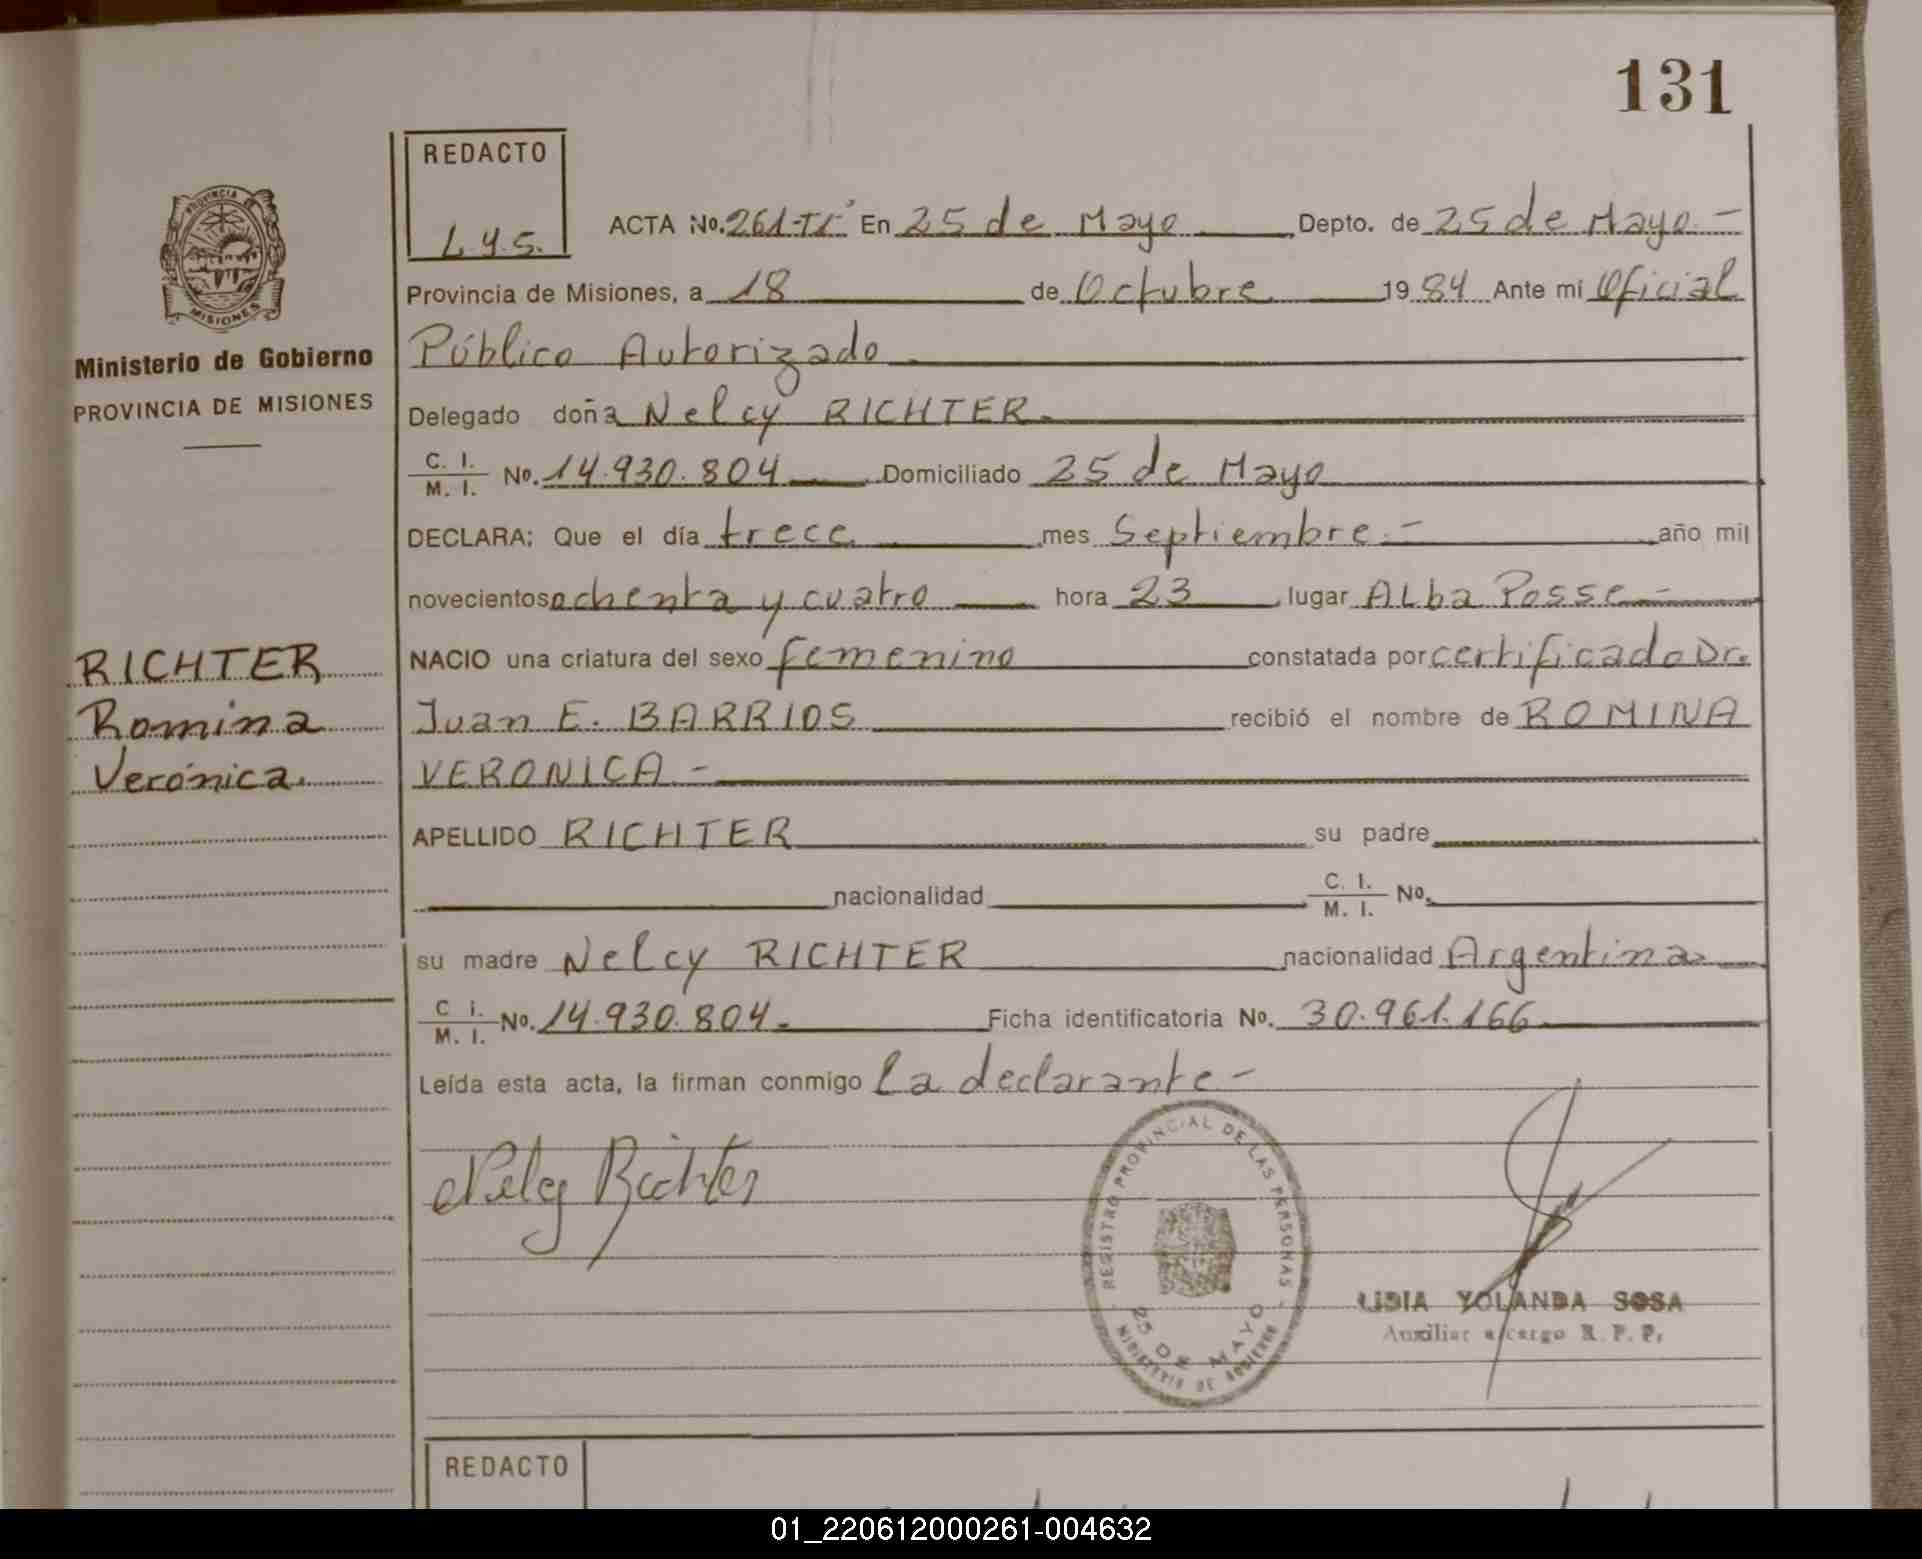 131
REDACTO
L.Y.S.
ACTA No. 261-TI- En 25 de Mayo Depto. de 25 de Mayo.-
Provincia de Misiones, a 18 de Octubre 1984 Ante mi Oficial
Público Autorizado
Delegado doña Nelcy RICHTER.
C. I. / M. I. No. 14.930.804 Domiciliado 25 de Mayo
DECLARA: Que el día trece mes Septiembre.- año mil
novecientos ochenta y cuatro hora 23 lugar Alba Posse.-
NACIO una criatura del sexo femenino constatada por certificado Dr.
Juan E. BARRIOS recibió el nombre de ROMINA
VERONICA.-
APELLIDO RICHTER su padre
nacionalidad C. I. / M. I. No.
su madre Nelcy RICHTER nacionalidad Argentina
C I. / M. I. No. 14.930.804.- Ficha identificatoria No. 30.961.166
Leída esta acta, la firman conmigo la declarante-
Nelcy Richter
REGISTRO PROVINCIAL DE LAS PERSONAS
25 DE MAYO
MINISTERIO DE GOBIERNO
LIDIA YOLANDA SOSA
Auxiliar a cargo R. P. P.
PROVINCIA DE
MISIONES
Ministerio de Gobierno
PROVINCIA DE MISIONES
RICHTER
Romina
Verónica.
REDACTO
01_220612000261-004632